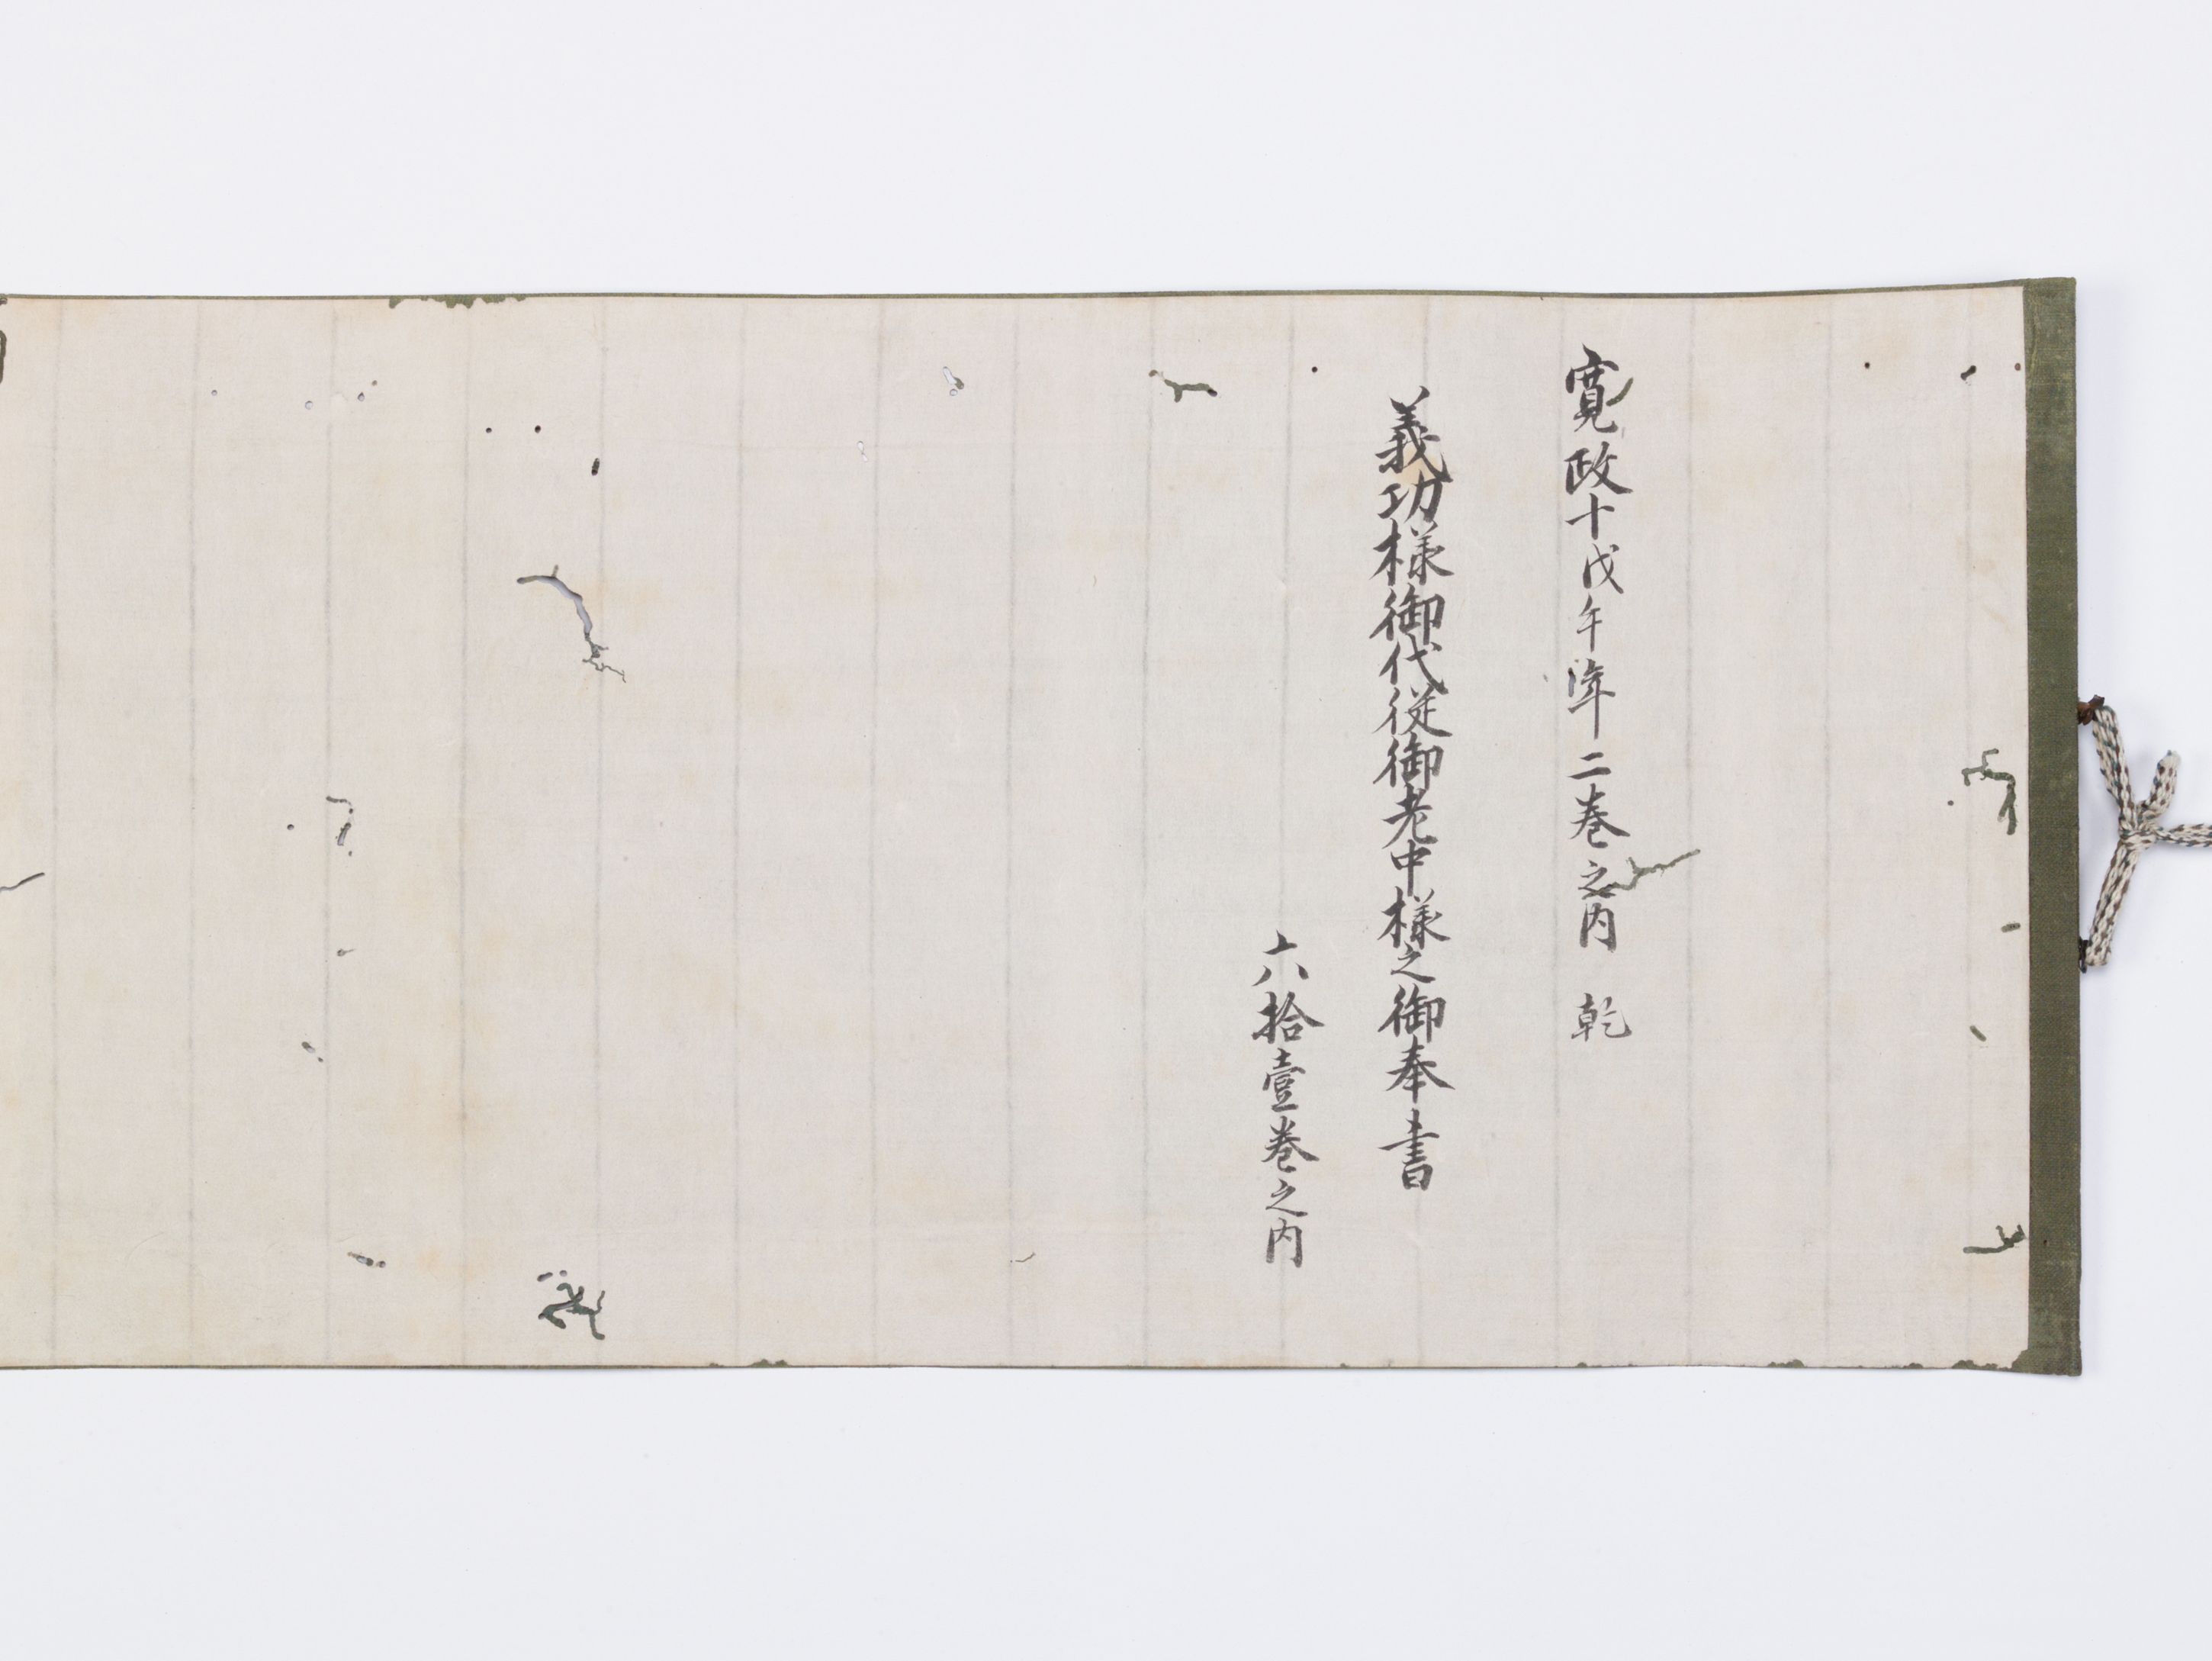 寛政十戊午年二巻之内 乾
義功様御代従御老中様之御奉書
六拾壹巻之内